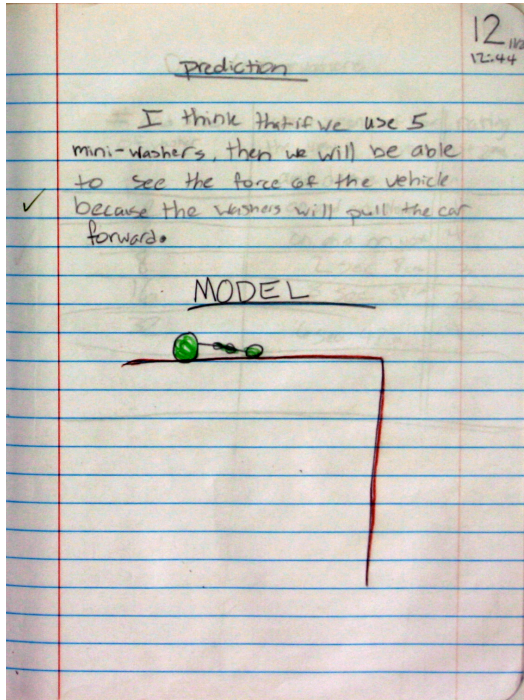 12
12:44
prediction
I think that if we use 5
mini-washers, then we will be able
to see the force of the vehicle
because the washers will pull the car
forward.
MODEL